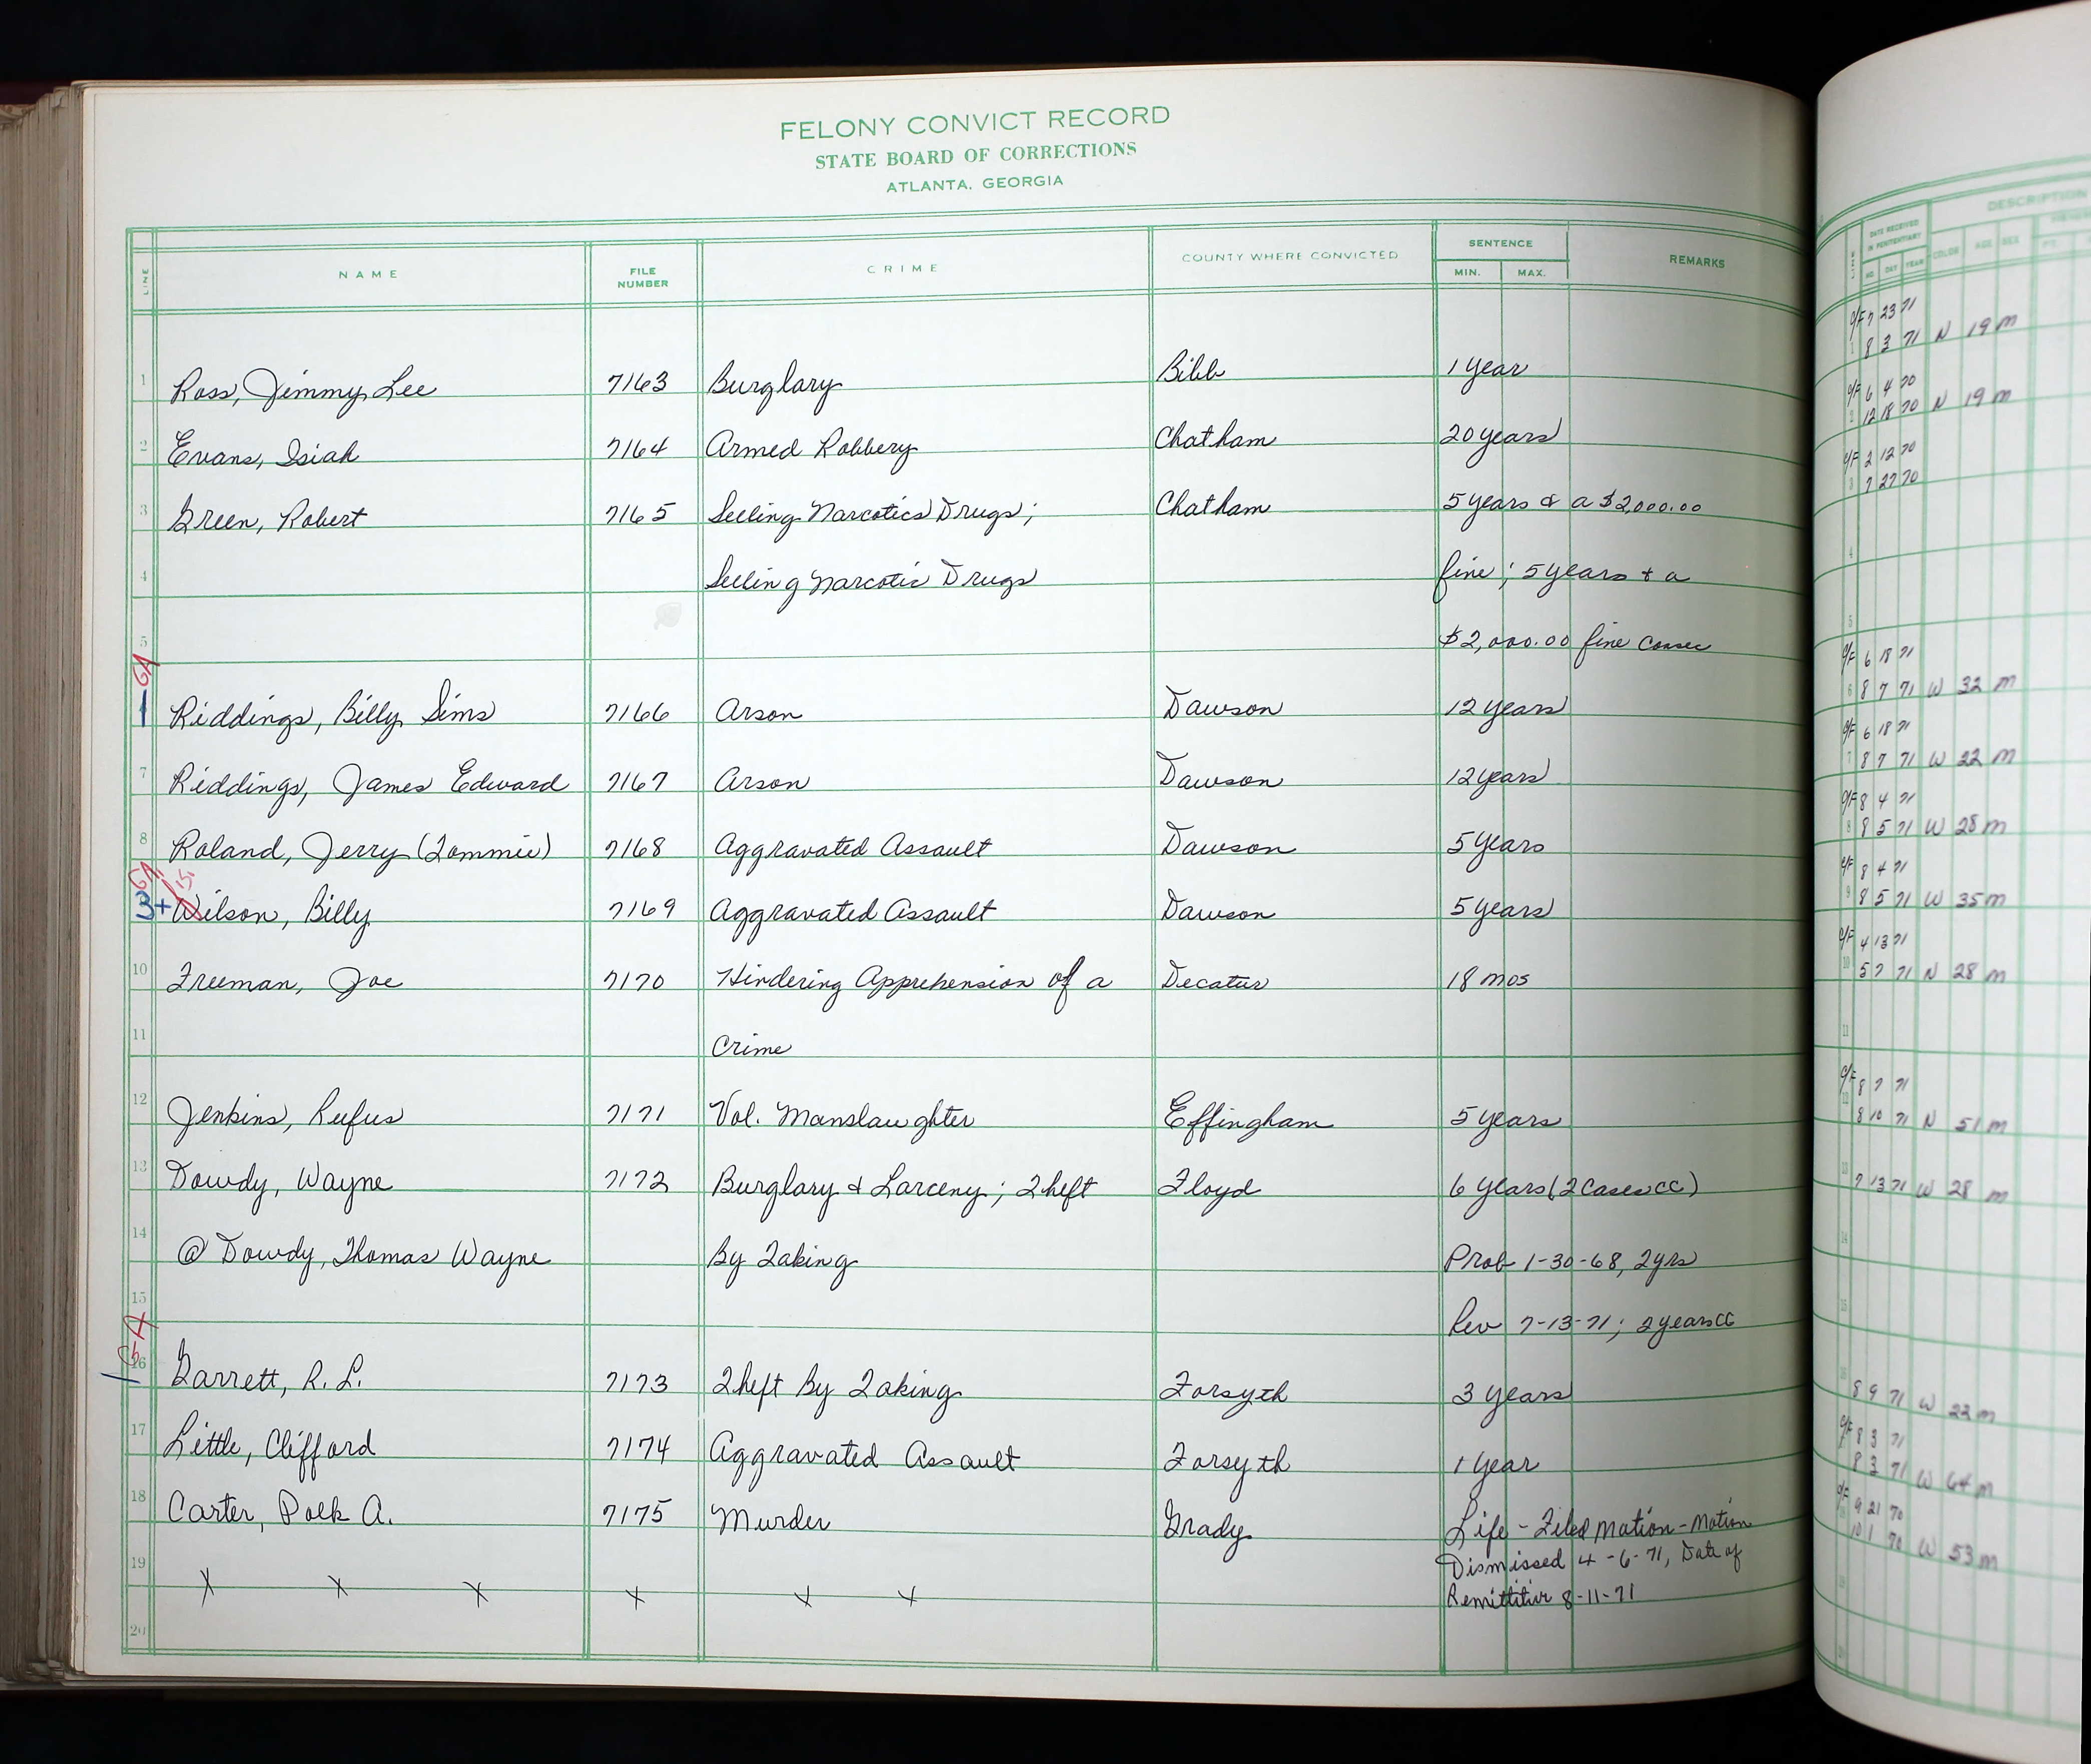 FELONY CONVICT RECORD
STATE BOARD OF CORRECTIONS
ATLANTA, GEORGIA
LINE NAME FILE NUMBER CRIME COUNTY WHERE CONVICTED SENTENCE MIN. MAX. REMARKS
1 Ross, Jimmy Lee 7163 Burglary Bibb 1 year
2 Evans, Isiah 7164 Armed Robbery Chatham 20 years
3 Green, Robert 7165 Selling Narcotics Drugs; Chatham 5 years & a $2,000.00
4 Selling Narcotic Drugs fine; 5 years & a
5 $2,000.00 fine Consec
GA
1 Riddings, Billy Sims 7166 Arson Dawson 12 years
7 Riddings, James Edward 7167 Arson Dawson 12 years
8 Roland, Jerry (Tommie) 7168 Aggravated Assault Dawson 5 years
GA
3+ Wilson, Billy 7169 Aggravated Assault Dawson 5 years
10 Freeman, Joe 7170 Hindering Apprehension of a Decatur 18 mos
11 Crime
12 Jenkins, Rufus 7171 Vol. Manslaughter Effingham 5 years
13 Dowdy, Wayne 7172 Burglary & Larceny; Theft Floyd 6 years (2 Cases CC)
14 @ Dowdy, Thomas Wayne By Taking Prob 1-30-68, 2yrs
15 Rev 7-13-71; 2 years CC
GA
1 16 Garrett, R. L. 7173 Theft By Taking Forsyth 3 years
17 Little, Clifford 7174 Aggravated Assault Forsyth 1 year
18 Carter, Polk A. 7175 Murder Grady Life - Filed Motion - Motion
19 Dismissed 4-6-71, Date of
X X X X X X Remittitur 8-11-71
20
DESCRIPTION
LINE DATE RECEIVED IN PENITENTIARY MO. DAY YEAR COLOR AGE SEX FT.
C/F 7 23 71
1 8 3 71 N 19 M
C/F 6 4 70
2 12 18 70 N 19 M
C/F 2 12 70
3 7 27 70
4
5
C/F 6 18 71
6 8 7 71 W 32 M
C/F 6 18 71
7 8 7 71 W 22 M
C/F 8 4 71
8 8 5 71 W 28 M
C/F 8 4 71
9 8 5 71 W 35 M
C/F 4 13 71
10 5 7 71 N 28 M
11
C/F 8 7 71
12 8 10 71 N 51 M
13 7 13 71 W 28 M
14
15
8 9 71 W 22 M
C/F 8 3 71
8 3 71 W 64 M
C/F 9 21 70
10 1 70 W 53 M